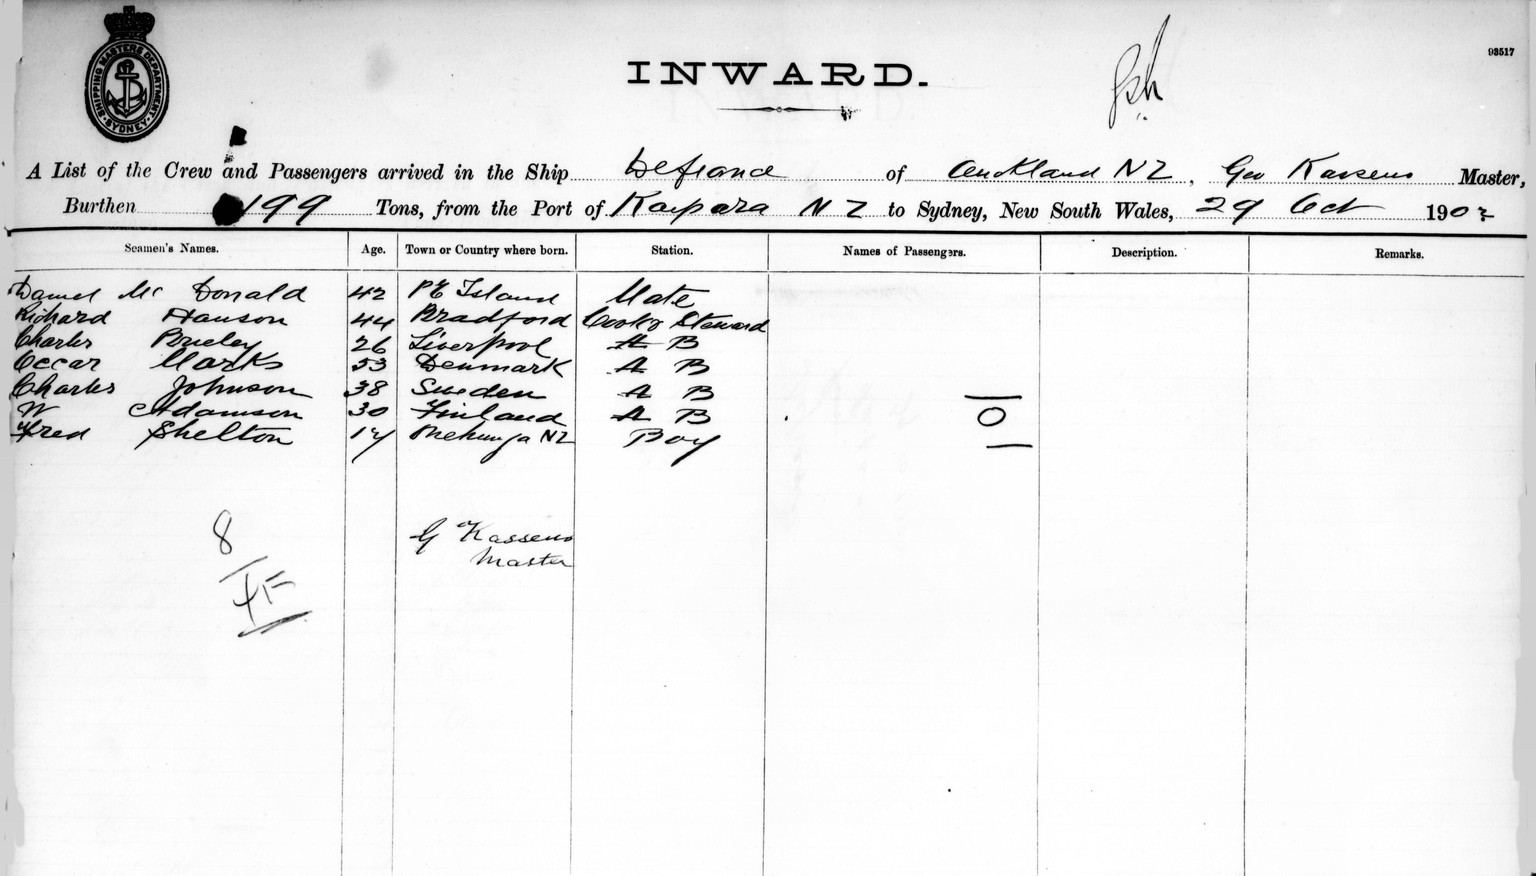 SHIPPING MASTERS DEPARTMENT SYDNEY
INWARD.
93517
A List of the Crew and Passengers arrived in the Ship Defiance of Auckland NZ, Geo Kassens Master,
Burthen 199 Tons, from the Port of Kaipara NZ to Sydney, New South Wales, 29 Oct 190
Seamen's Names. Age. Town or Country where born. Station. Names of Passengers. Description. Remarks.
Daniel Mc Donald 42 PE Island Mate
Richard Hanson 44 Bradford Cook & Steward
Charles 26 Liverpool A B
Occar Marks 53 Denmark A B
Charles Johnson 38 Sweden A B
W Adamson 30 Finland A B O
Fred Shelton 17 Onehunga NZ Boy
8
G Kassens
Master